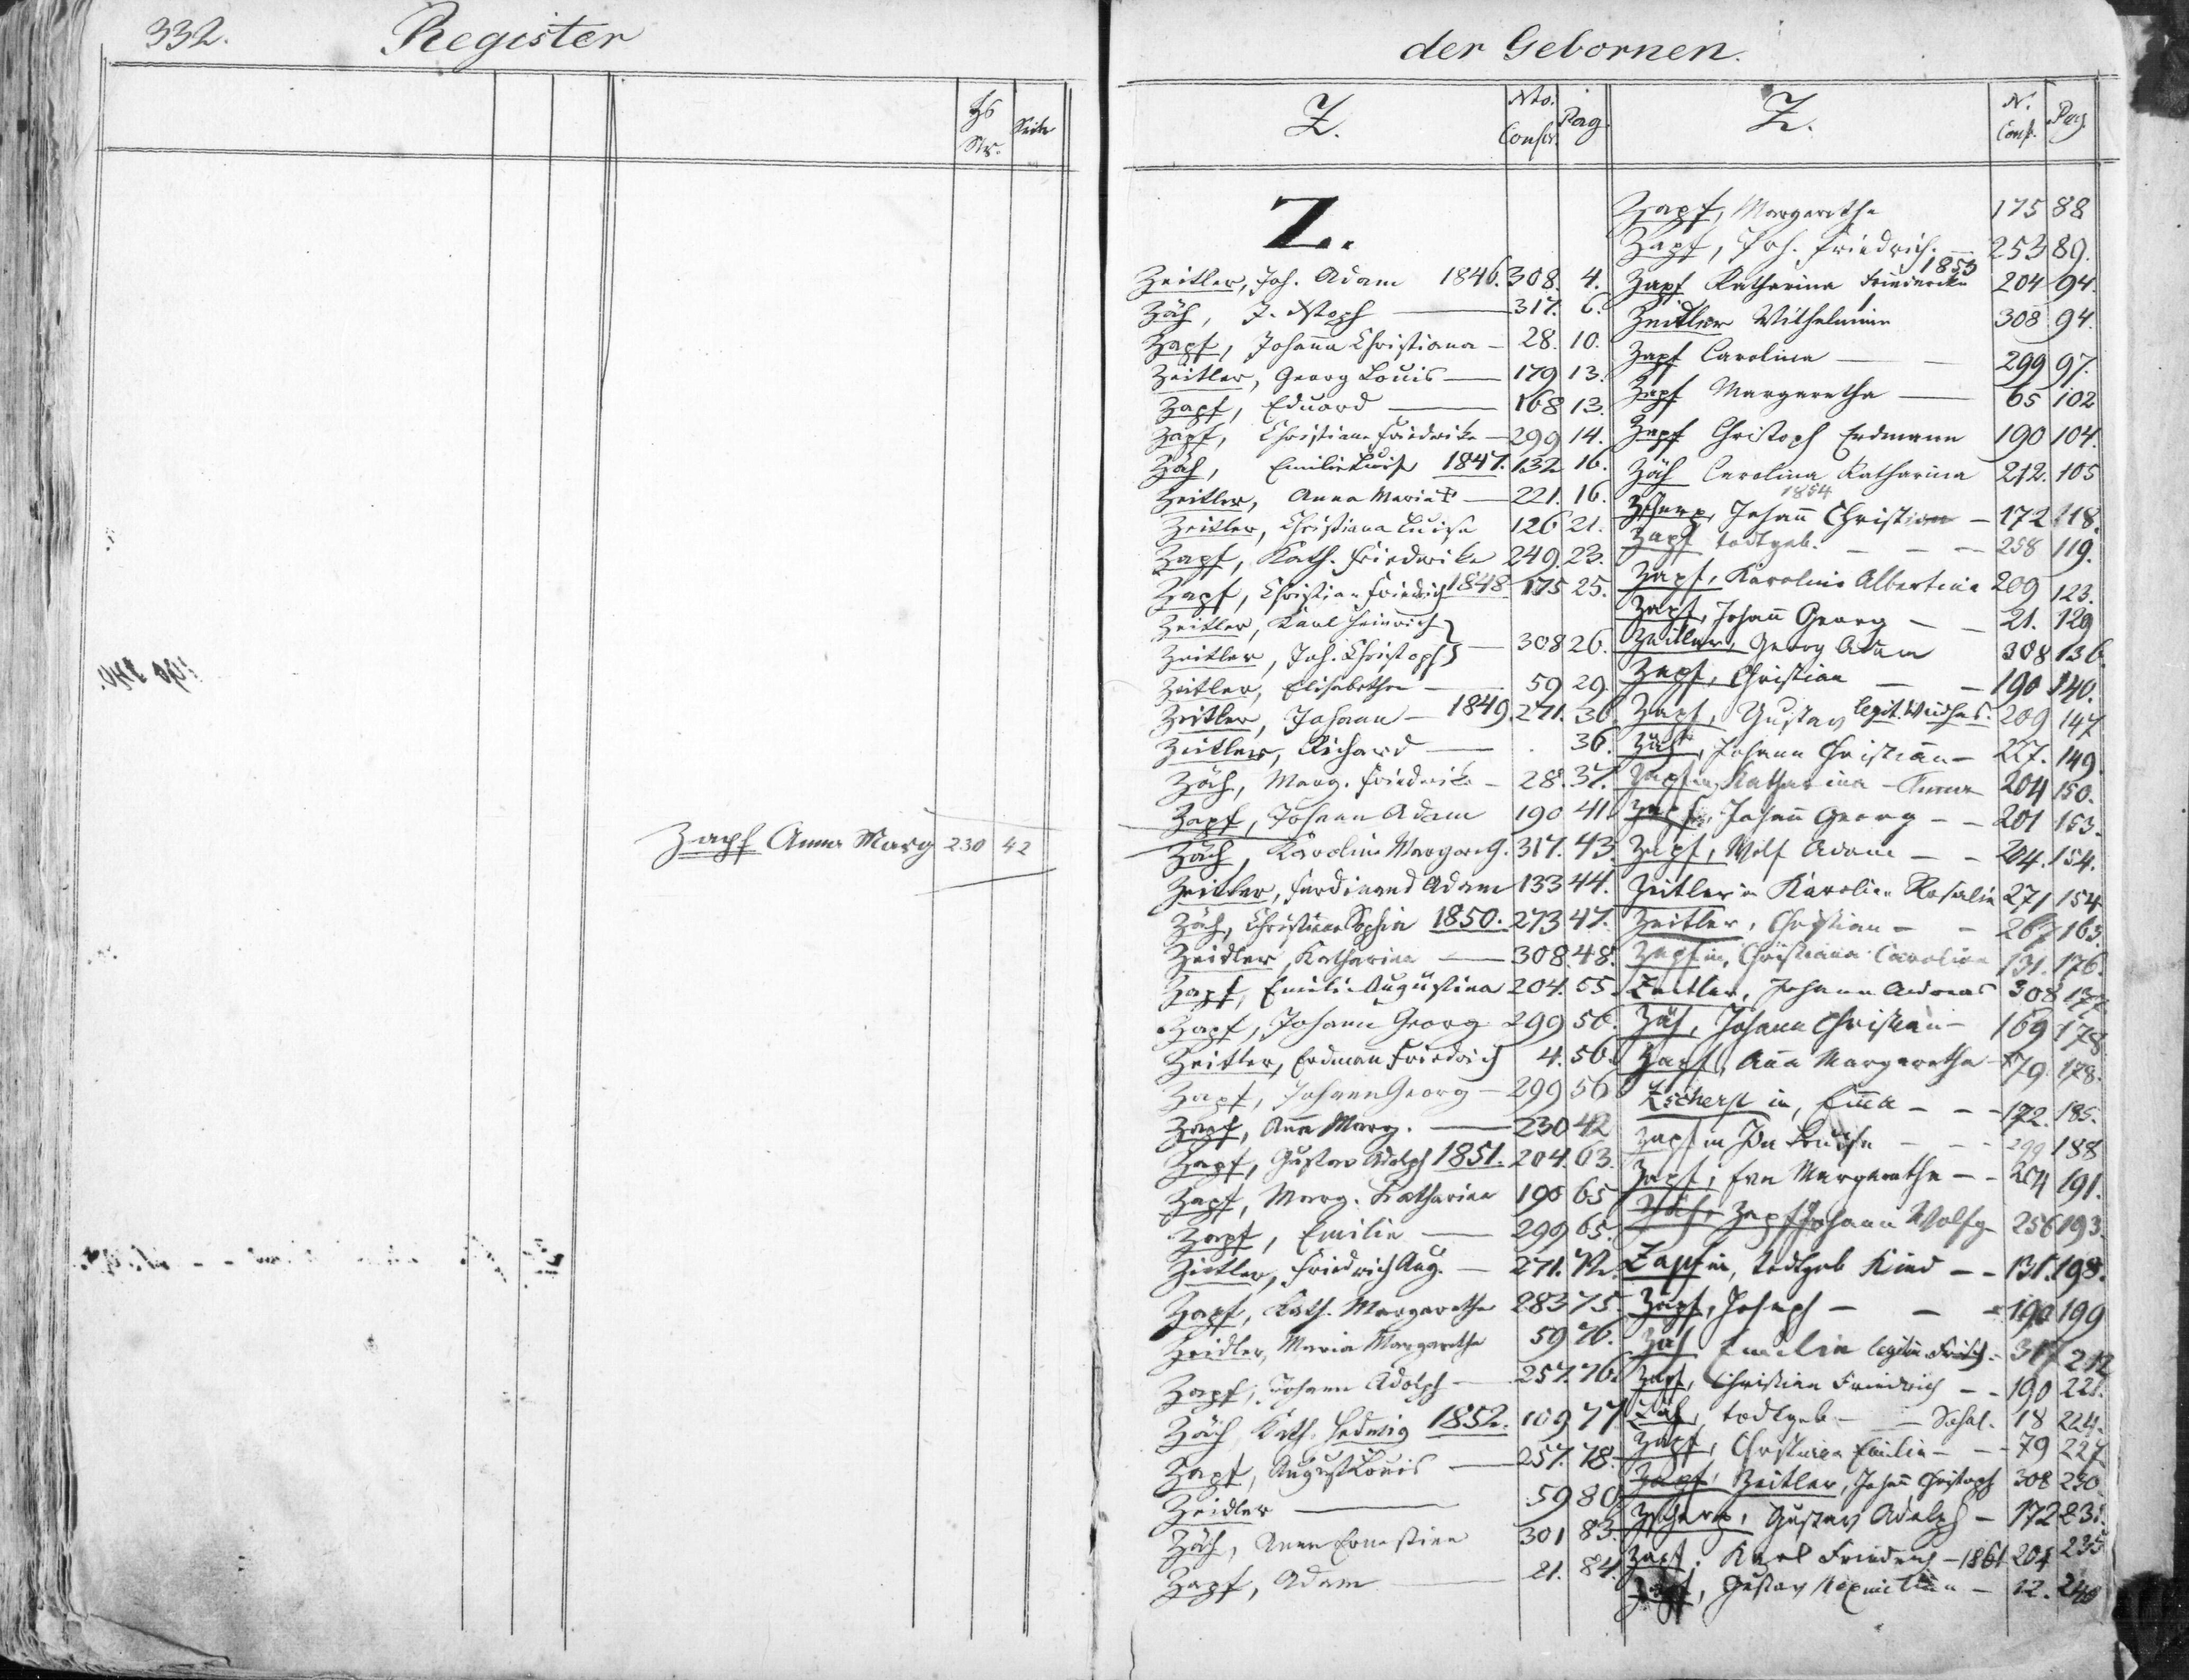 332. Register
Hs Nr. Seite
Zapf Anna Marg 230 42
der Gebornen.
Z. Nro. Conscr. Pag.
Z.
Zeitler, Joh. Adam 1846. 308. 4.
Zöh, J. Xstoph 317. 6.
Zapf, Johanna Christiana - 28. 10.
Zeitler, Georg Louis - 179 13.
Zapf, Eduard - 168 13.
Zapf, Christiane Friederike - 299 14.
Zöh, Emilie Luise 1847. 132 16.
Zeitler, Anna Maria - 221. 16.
Zeitler, Christiana Luise 126 21.
Zapf, Kath. Friederike 249. 23.
Zapf, Christian Friedrich 1848 175 25.
Zeitler, Karl Heinrich
Zeitler, Joh. Christoph - 308 26.
Zeitler, Elisabetha - 59 29.
Zeitler, Johann - 1849. 271. 36.
Zeitler, Richard - 36.
Zöh, Marg. Friederike - 28. 37.
Zapf, Johann Adam 190 41.
Zöh, Karoline Margareth. 317. 43.
Zeitler, Ferdinand Adam 133 44.
Zöh, Christiane Sophia 1850. 273 47.
Zeidler, Katharina - 308. 48.
Zapf, Emilie Augustina 204. 55.
Zapf, Johann Georg 299 56.
Zeitler, Erdmann Friedrich 4. 56.
Zapf, Johann Georg - 299 56
Zapf, Anna Marg. - 230 42
Zapf, Gustav Adolph 1851. 204. 63.
Zapf, Marg. Katharina 190 65
Zapf, Emilie - 299 65.
Zeitler, Friedrich Aug. - 271. 72.
Zapf, Kath. Margaretha 283 75.
Zeidler, Maria Margaretha 59 76.
Zapf, Johann Adolph - 257. 76.
Zöh, Kath. Hedwig 1852. 109 77
Zapf, August Louis - 257. 78.
Zeidler - 59 80.
Zöh, Anna Ernestine 301 83.
Zapf, Adam - 21. 84.
Z. N. Conscr. Pag.
Zapf, Margaretha 175 88
Zapf, Joh. Friedrich. - 253 89.
1853
Zapf Katharina Friedericka 204 94.
Zeitler Wilhelmine 308 94.
Zapf Carolina - 299 97.
Zapf Margaretha - 65 102
Zapf Christoph Erdmann 190 104.
Zöh Carolina Katharina 212. 105
1854
Zscherp, Johann Christian - 172 118.
Zapf todtgeb. - - - 258 119.
Zapf, Karoline Albertine 209 123.
Zapf, Johann Georg - - 21. 129
Zeitler, Georg Adam 308 136.
Zapf, Christian - - 190 140.
Zapf, Gustav legit. 209 147
Zöh, Johann Christian - 227. 149.
Zapfin, Katharina - 204 150.
Zapf, Johann Georg - - 201 153.
Zapf, Wolf Adam - - 204. 154.
Zeitlerin Karoline Rosalie 271 154
Zeitler, Christian - - 267 163.
Zapfin, Christiana Caroline 131. 176.
Zeitler, Johann Andreas 308 177
Zöh, Johann Christian - 169 178
Zapf, Anna Margaretha - 79. 178.
Zscherpin, Emma - - - 172. 185.
Zapfin Ida Louise - - 299 188
Zapf, Eva Margaretha - - 204 191.
Zöh, Zapf Johann Wolfg 256 193.
Zapfin, todtgeb Kind - - 131. 198.
Zapf, Joseph - - - 190 199
Zöh Emilie legitim. 317 212
Zapf, Christian Friedrich - - 190 221.
Zöh, todtgeb - - 18 224.
Zapf, Christiane Emilie - - - 79 227
Zapf, Zeitler, Johann Christoph 308 230.
Zscherp, Gustav Adolph - 172 231.
Zapf, Karl Friedrich - 1861 204 235
Zapf, Gustav Maximilian - 12. 240